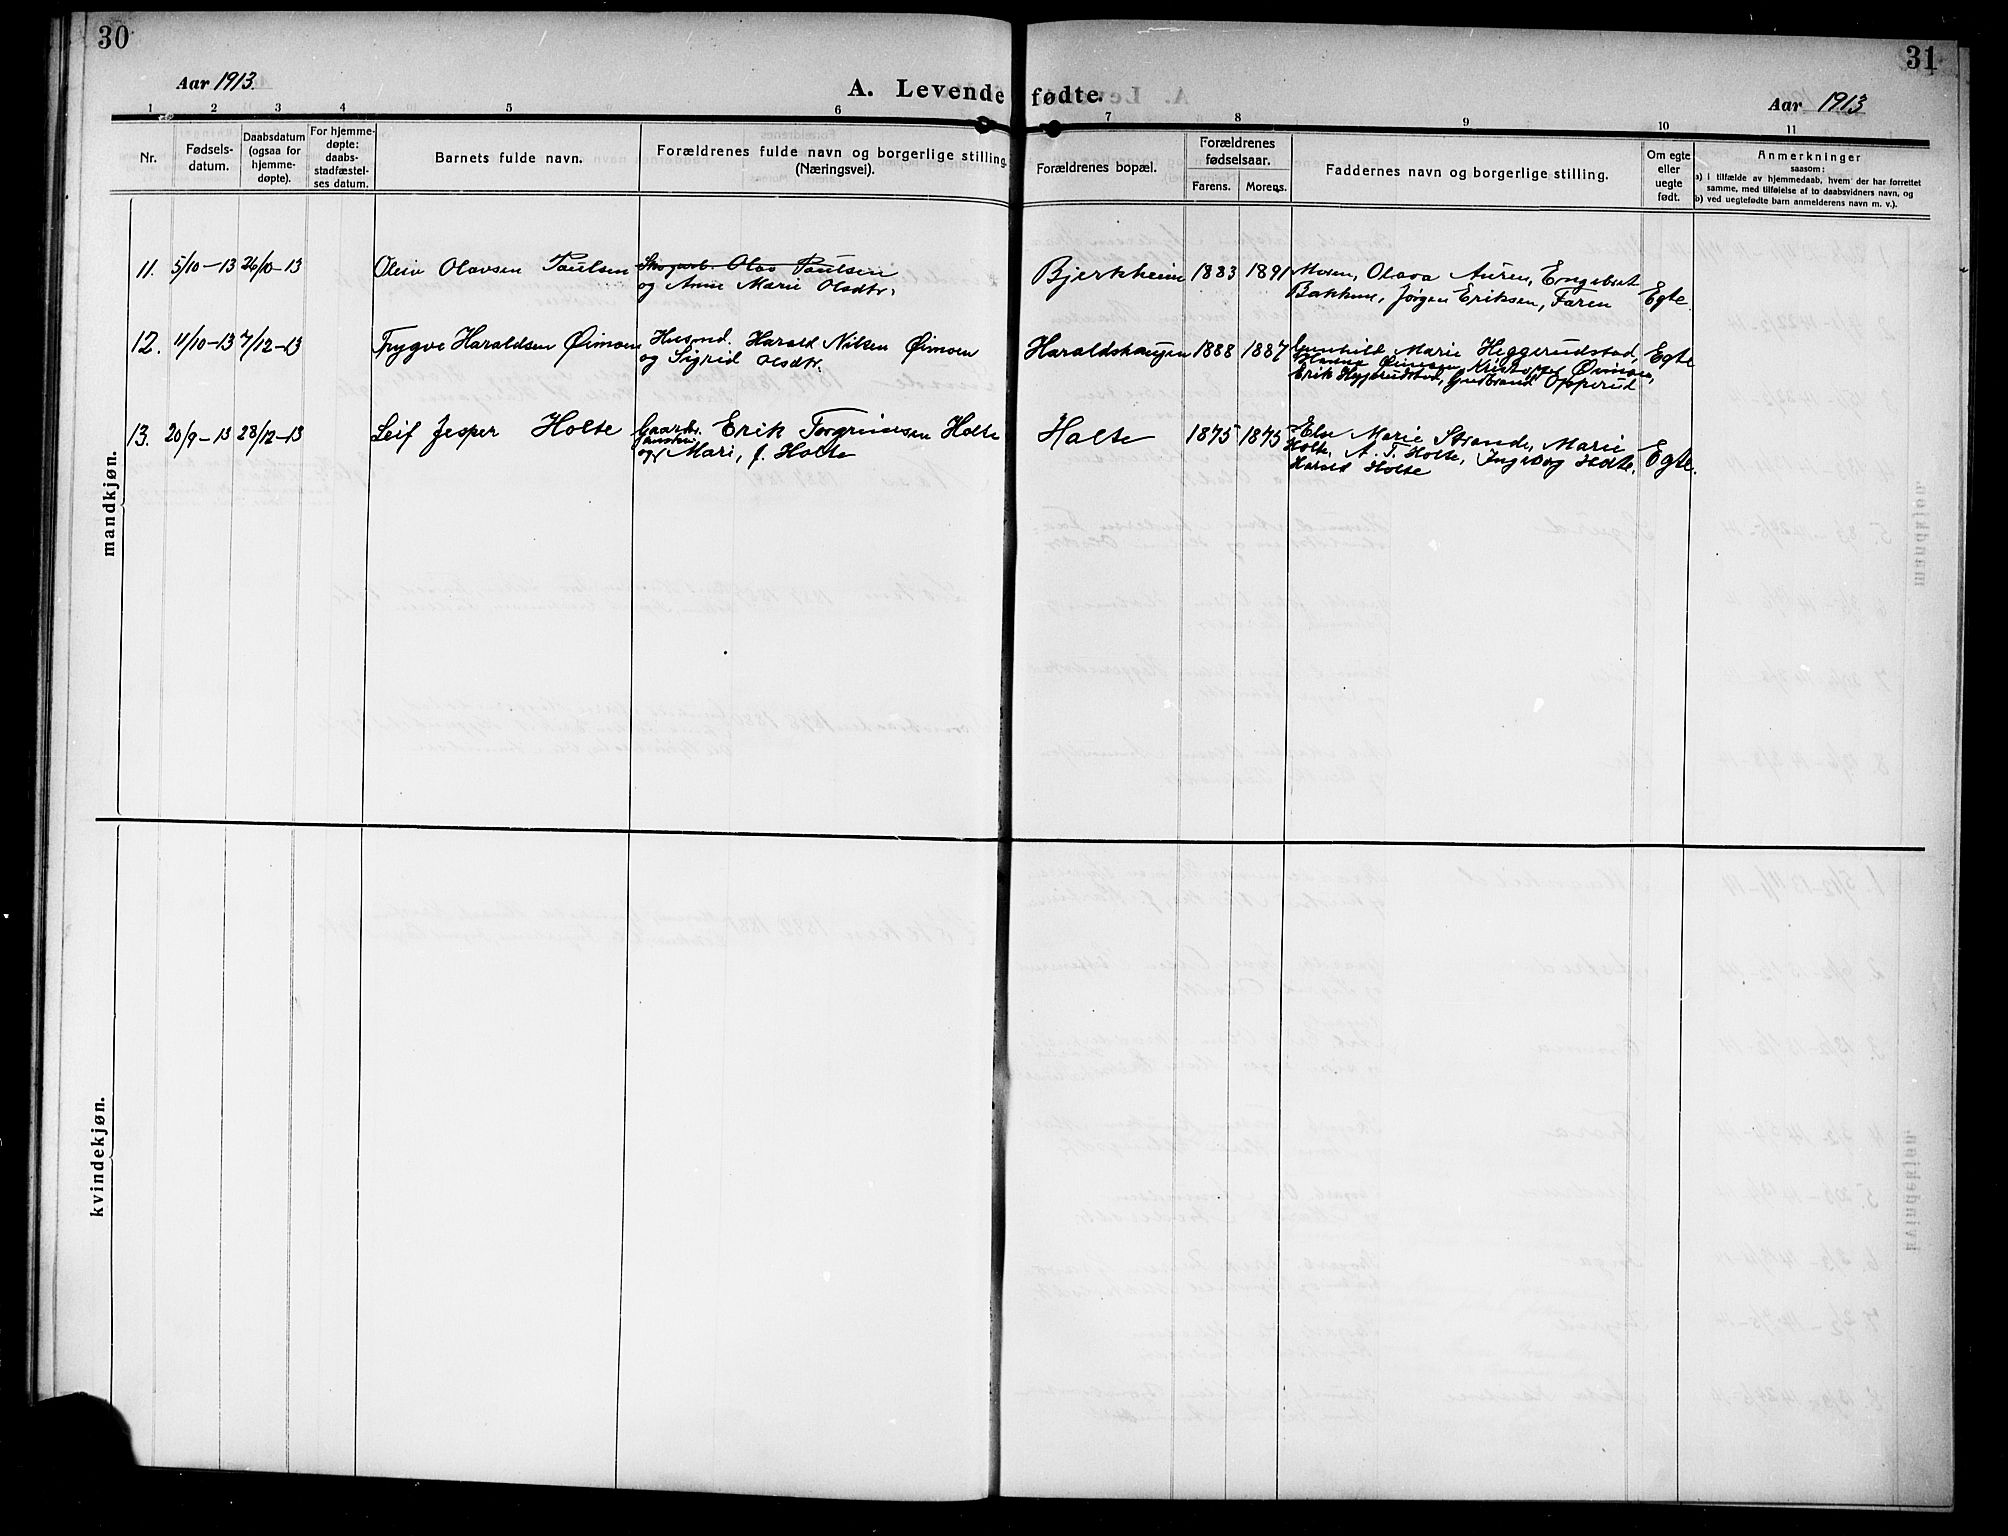 30
31
Aar 1913.
A. Levende fødte.
Aar 1913
1 2 3 4 5 6 7 8 9 10 11
Nr.
Fødsels-
datum.
Daabsdatum
(ogsaa for
hjemme-
døpte).
For hjemme-
døpte:
daabs-
stadfæstel-
ses datum.
Barnets fulde navn.
Forældrenes fulde navn og borgerlige stilling.
(Næringsvei).
Forældrenes bopæl.
Forældrenes
fødselsaar.
Farens. Morens.
Faddernes navn og borgerlige stilling.
Om egte
eller
uegte
født.
Anmerkninger
saasom:
a) i tilfælde av hjemmedaab, hvem der har forrettet
samme, med tilføielse av to daabsvidners navn, og
b) ved uegtefødte barn anmelderens navn m. v.).
mandkjøn.
11. 5/10-13 26/10-13 Oleiv Olavsen Paulsen Skogarb. Olav Paulsen Bjerkheim 1883 1891 Moren, Olava Auren, Engebret
og Anne Marie Olsdtr. Bakkene, Jørgen Eriksen, Faren Egte
12. 11/10-13 7/12-13 Trygve Haraldsen Øimoen Husmd. Harald Nilsen Øimoen Haraldshaugen 1888 1887 Gunhild Marie Heggerudstad, Egte
og Sigrid Olsdtr. Kristoffer Øimoen,
Erik Heggerudstad, Gudbrand Opperud
13. 20/9-13 28/12-13 Leif Jesper Holte Gaardbr. Erik Torgrimsen Holte Holte 1875 1875 Else Marie Strande, Marie
og Mari, f. Holte Holte, A. T. Holte, Ingeborg Holte, Egte.
Harald Holte
kvindekjøn.